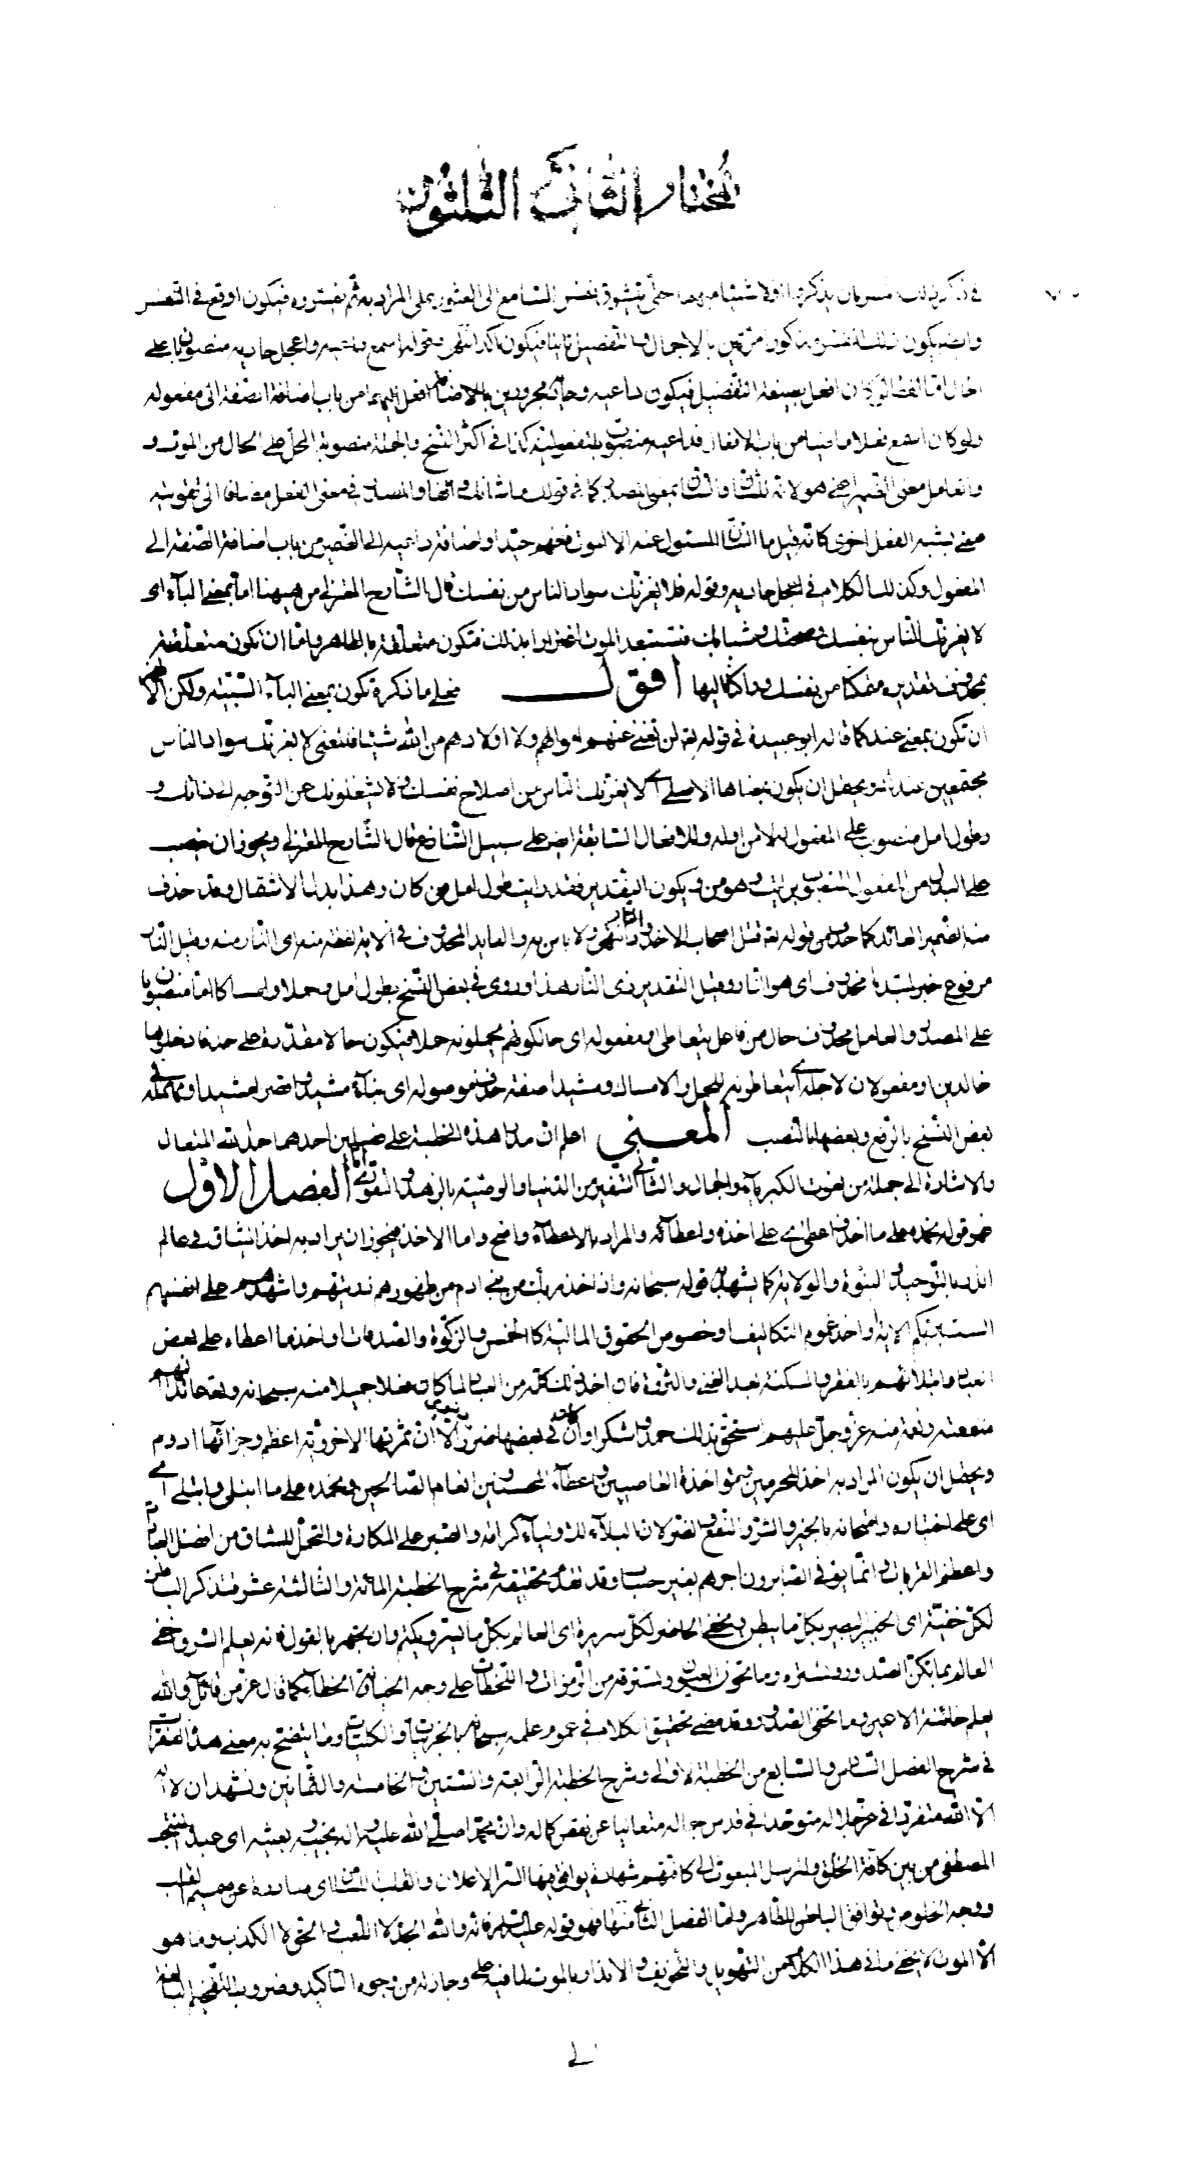 المختار الثانى الثلثون
حتى يتشوق نفس السامع الى العثور على المراد به ثم يفسروه فيكون اوقع فى النفس
يكون ذلك مذكورا مرتين بالاجمال والتفصيل ثانيا فيكون اكد انتهى وقوله اسمع واعجل حاديه منصوبان على
الحال ان افعل بصيغة التفضيل فيكون داعيه وحاديه مجرورين بالاضافة من باب اضافة الصفة الى مفعوله
ولو كان اسمع فعلا ماضيا من باب الافعال فداعيه منصوب بالمفعولية كذا فى اكثر النسخ والجملة منصوبة المحل على الحال من الموت و
والعامل معنى الضمير اعنى هو لانه للشان والشان بمعنى المصدر كما فى قولك ما شانك واقفا والمصدر فى معنى الفعل
معنى يشبه الفعل اخرى كانه قيل ما الشان المسئول عنه الا الموت فافهم جيدا واضافة داعيه الى الضمير من باب اضافة الصفة الى
المفعول وكذلك الكلام فى اعجل حاديه وقوله فلا يغرنك سواد الناس من نفسك قال الشارح المعتزلى من ههنا اما بمعنى الباء اى
لا يغرنك الناس بنفسك وصحتك وشبابك فتستبعد الموت اغترارا بذلك فتكون متعلقة بالظاهر واما ان تكون متعلقة
بمحذوف تقديره متمكنا من نفسك وراكنا اليها اقول فعلى ما ذكره تكون بمعنى الباء السببية ولكن الاظهر
ان تكون بمعنى عند كما قاله ابو عبيدة فى قوله تع لن تغنى عنهم اموالهم ولا اولادهم من الله شيئا فالمعنى لا يغرنك سواد الناس
مجتمعين عندك ويحتمل ان يكون بمعناها الاصلى اى لا يغرنك الناس من اصلاح نفسك ولا يشغلونك عن التوجه الى ذاتك و
وطول امل منصوب على المفعول له لامن اوله وللافعال السابقة ايضا على سبيل التنازع قال الشارح المعتزلى ويجوز ان ينصب
على البدل من المفعول المنصوب برايت وهو من ويكون التقدير فقد رايت طول امل من كان وهذا بدل الاشتمال وقد حذف
منه الضمير العائد كما حذف من قوله تع قتل اصحاب الاخدود النار انتهى ولا باس به والعايد المحذوف فى الاية لفظة منه اى النار منه وقيل النار
مرفوع خبر لمبتدا محذوف اى هو النار وقيل التقدير ذى النار هذا وروى فى بعض النسخ بطول امل وحملا وامساكا اما منصوبان
على المصدر والعامل محذوف حال من فاعل يتعاطى او مفعوله اى حالكونهم يحملونه حملا فيكون حالا مقدرة على حد فادخلوها
خالدين او مفعولان لاجله اى يتعاطونه للحمل والامساك ومشيدا صفة حذف موصوله اى بناء مشيدا وقصرا مشيدا وجملة فى
بعض النسخ بالرفع وبعضها بالنصب المعنى اعلم ان مدار هذه الخطبة على فصلين احدهما حمد لله المتعال
والاشارة الى جملة من نعوت الكبرياء والجمال والثانى التنفير من الدنيا والوصية بالزهد والتقوى اما الفصل الاول
فهو قوله نحمده على ما اخذ واعطى اى على اخذه واعطائه والمراد بالاعطاء واضح واما الاخذ فيجوز ان يراد به اخذ الميثاق فى عالم
الذر بالتوحيد والنبوة والولاية كما يشهد به قوله سبحانه واذ اخذ ربك من بنى ادم من ظهورهم ذريتهم واشهدهم على انفسهم
الست بربكم الاية واخذ عموم التكاليف او خصوص الحقوق المالية كالخمس والزكوة والصدقات او اخذ ما اعطاه على بعض
العباد وابتلائهم بالفقر والمسكنة بعد الغنى والثروة فان اخذ ذلك كله من العباد لما كان فعلا جميلا منه سبحانه
منفعة ونعمة منه عز وجل عليهم استحق بذلك حمدا وشكرا وان كان فى بعضها ضرر دنيوى الا ان ثمرتها الاخروية اعظم وجزائها ادوم
ويحتمل ان يكون المراد به اخذ المجرمين ومؤاخذة العاصيين وباعطاء المحسنين انعام الصالحين ونحمده على ما ابلى وابتلى اى
اى على اختباره وامتحانه بالخير والشر والنفع والضر لان البلاء للاولياء كرامة والصبر على المكاره والتحمل للمشاق من افضل العبادات
واعظم القربات وانما يوفى الصابرون اجرهم بغير حساب وقد تقدم تحقيقه فى شرح الخطبة المائة والثالثة عشر فتذكر الباطن
لكل خفية اى الخبير البصير بكل ما يبطن ويخفى الحاضر لكل سريرة اى العالم بكل ما يسر ويكتم وان تجهر بالقول فانه يعلم السر واخفى
العالم بما تكن الصدور وتستره وما تخون العيون وتسترقه من الرمزات واللحظات على وجه الخيانة والخطاء كما قال عز من قائل والله
يعلم خائنة الاعين وما تخفى الصدور وقد مضى تحقيق الكلام فى عموم علمه سبحانه بالجزئيات والكليات وما يتضح به معنى هذه الفقرات
فى شرح الفصل السادس والسابع من الخطبة الاولى وشرح الخطبة الرابعة والستين والخامسة والثمانين ونشهد ان لا اله
الا الله متفردا فى عز جلاله متوحدا فى قدس جماله متعاليا عن نقص كماله وان محمدا صلى الله عليه واله نجيبه وبعيثه اى عبده المنتجب
المصطفى من بين كافة الخلق والمرسل المبعوث الى كافتهم شهادة يوافق فيها السر الاعلان والقلب اللسان اى صادرة عن صميم القلب
ووجه الخلوص وتوافق الباطن للظاهر واما الفصل الثانى منها فهو قوله عليه السلام فانه والله الجد لا اللعب والحق لا الكذب وما هو
الا الموت لا يخفى ما فى هذا الكلام من التهويل والتخويف والانذار بالموت لما فيه على وجازته من وجوه التاكيد وضروب التفخيم البالغة